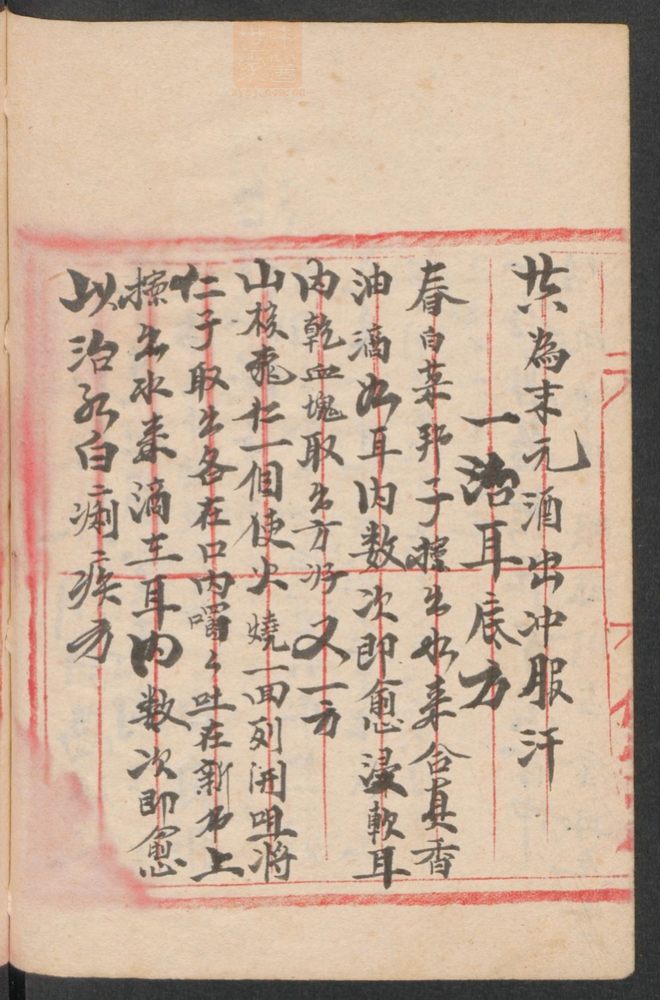 共為末元酒出冲服汗
一治耳底方
春白菜邦子擰出水来合真香
油滴如耳内数次即愈浸軟耳
内乾血塊取出方好又一方
山核桃仁一個使火燒一面列開咀将
仁子取出各在口内嚼々吐在新布上
擰出水来滴在耳内数次即愈
以治紅白痢疾方